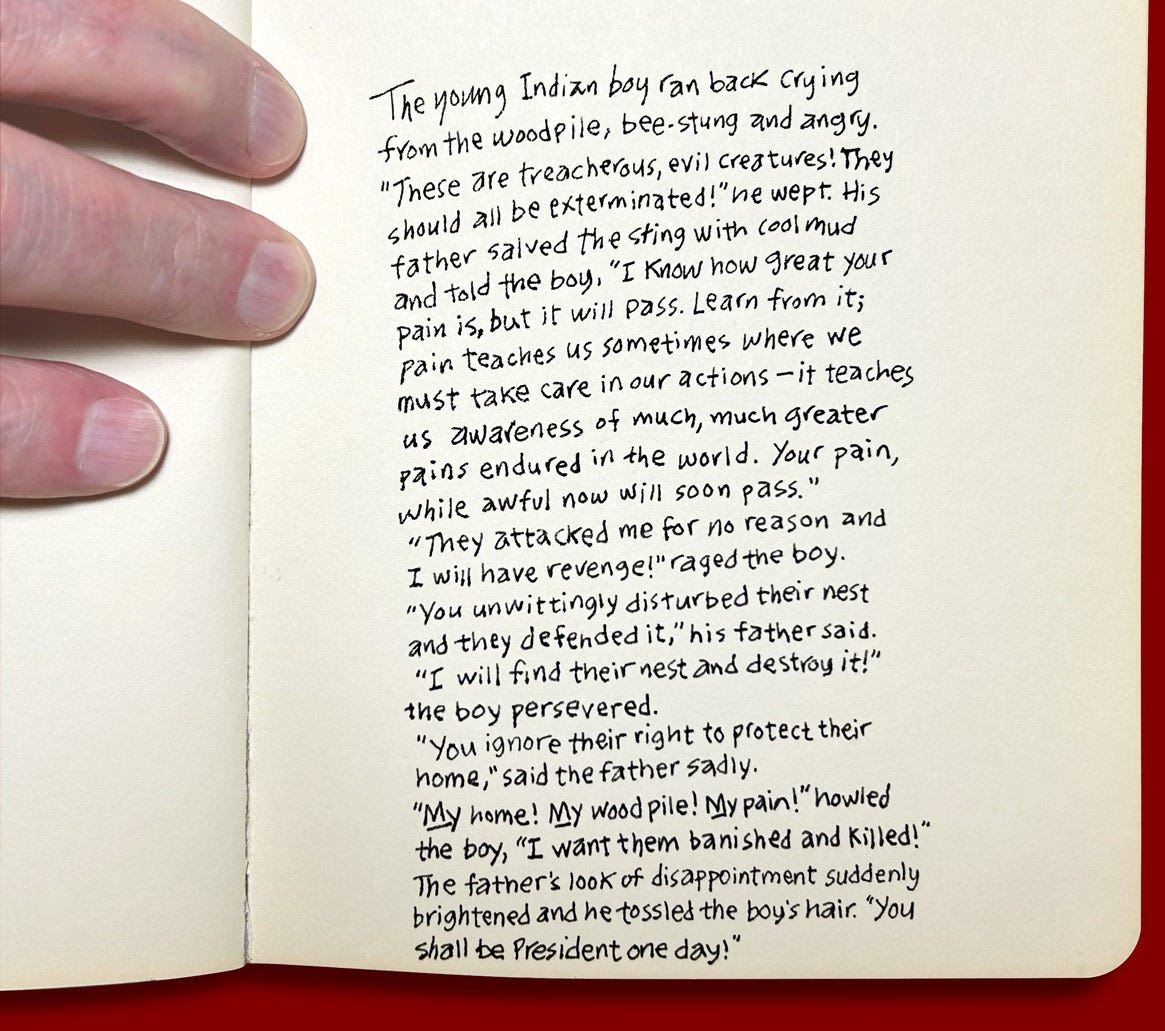 The young Indian boy ran back crying
from the woodpile, bee-stung and angry.
"These are treacherous, evil creatures! They
should all be exterminated!" he wept. His
father salved the sting with cool mud
and told the boy, "I know how great your
pain is, but it will pass. Learn from it;
pain teaches us sometimes where we
must take care in our actions – it teaches
us awareness of much, much greater
pains endured in the world. Your pain,
while awful now will soon pass."
"They attacked me for no reason and
I will have revenge!" raged the boy.
"You unwittingly disturbed their nest
and they defended it," his father said.
"I will find their nest and destroy it!"
the boy persevered.
"You ignore their right to protect their
home," said the father sadly.
"My home! My woodpile! My pain!" howled
the boy, "I want them banished and killed!"
The father's look of disappointment suddenly
brightened and he tossled the boy's hair. "You
shall be President one day!"